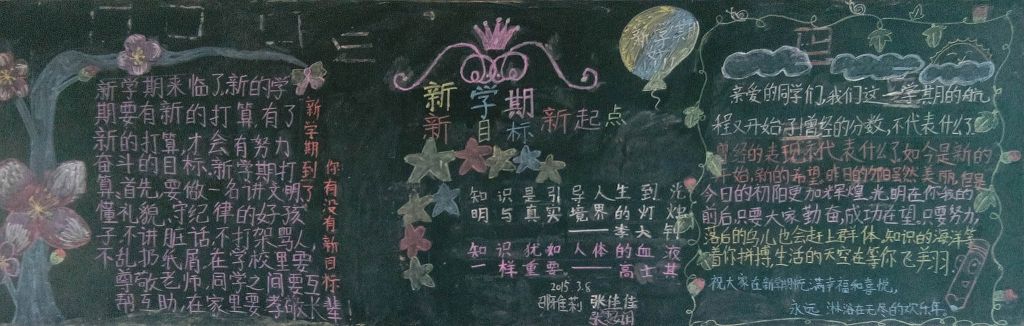 新学期来临了,新的学
期要有新的打算,有了
新的打算,才会有努力
奋斗的目标,新学期打
算,首先,要做一名讲文明,
懂礼貌,守纪律的好孩
子,不讲脏话,不打架骂人,
不乱扔纸屑,在学校里要
尊敬老师,同学之间要互
帮互助,在家里要孝敬长辈
新学期到了
你有没有新目标
新学期
新目标 新起点
知识是引导人生到光
明与真实境界的灯烛
——李大钊
知识犹如人体的血液
一样重要——高士其
2015.3.8
张佳佳
亲爱的同学们,我们这一学期的航
程又开始了,曾经的分数,不代表什么了
曾经的表现不代表什么了,如今是新的
开始,新的希望,昨日的夕阳虽然美丽,但是
今日的初阳更加辉煌,光明在你我的
前后,只要大家勤奋,成功在望,只要努力,
落后的鸟儿也会赶上群体,知识的海洋等
着你拼搏,生活的天空在等你飞丰羽.
祝大家在新学期充满幸福和喜悦,
永远 淋浴在无尽的欢乐年